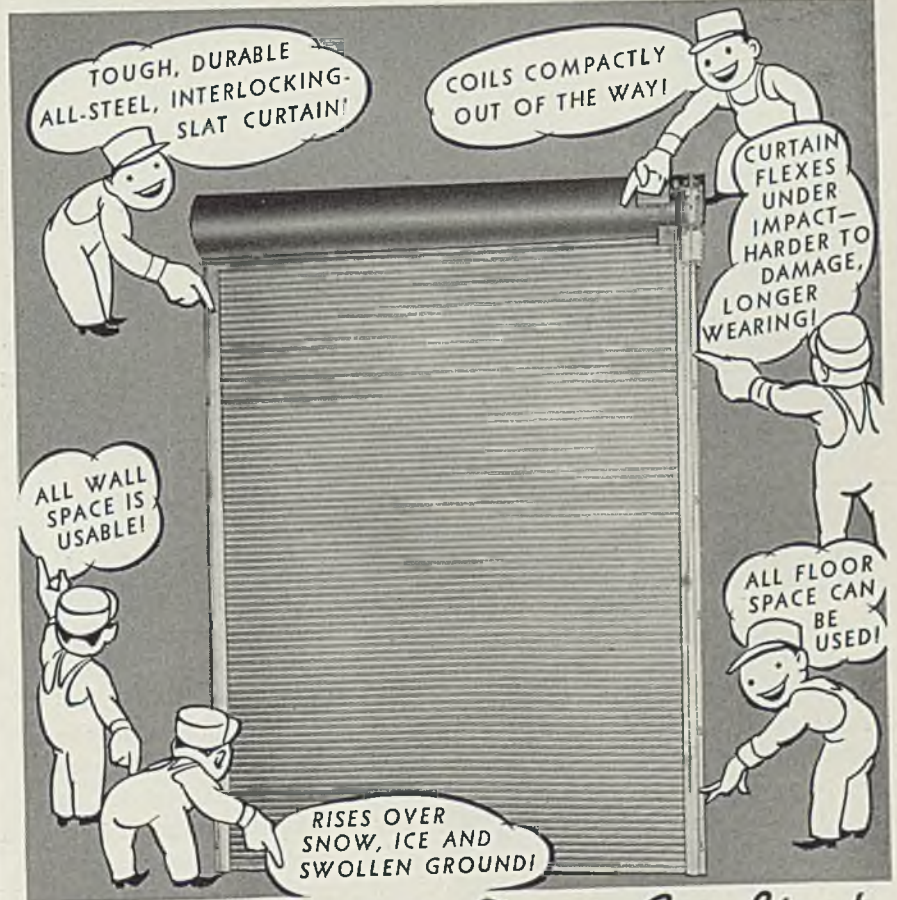 TOUGH, DURABLE
ALL-STEEL, INTERLOCKING-
SLAT CURTAIN!
COILS COMPACTLY
OUT OF THE WAY!
CURTAIN
FLEXES
UNDER
IMPACT—
HARDER TO
DAMAGE,
LONGER
WEARING!
ALL WALL
SPACE IS
USABLE!
ALL FLOOR
SPACE CAN
BE
USED!
RISES OVER
SNOW, ICE AND
SWOLLEN GROUND!